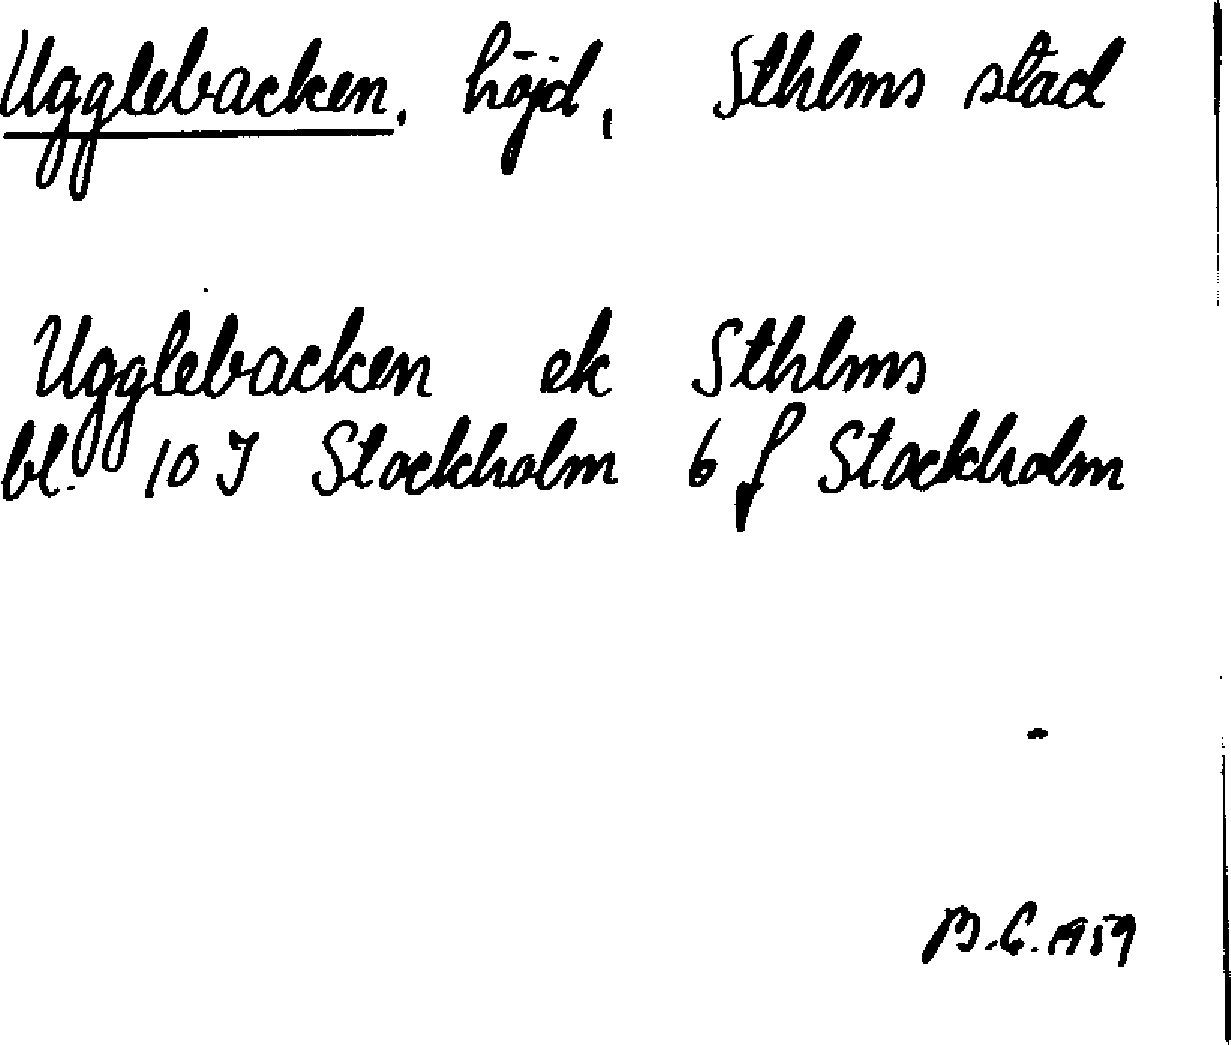 Ugglebacken, höjd, Sthlms stad
Ugglebacken ek Sthlms
bl. 10 I Stockholm 6 f Stockholm
B.G. 1959